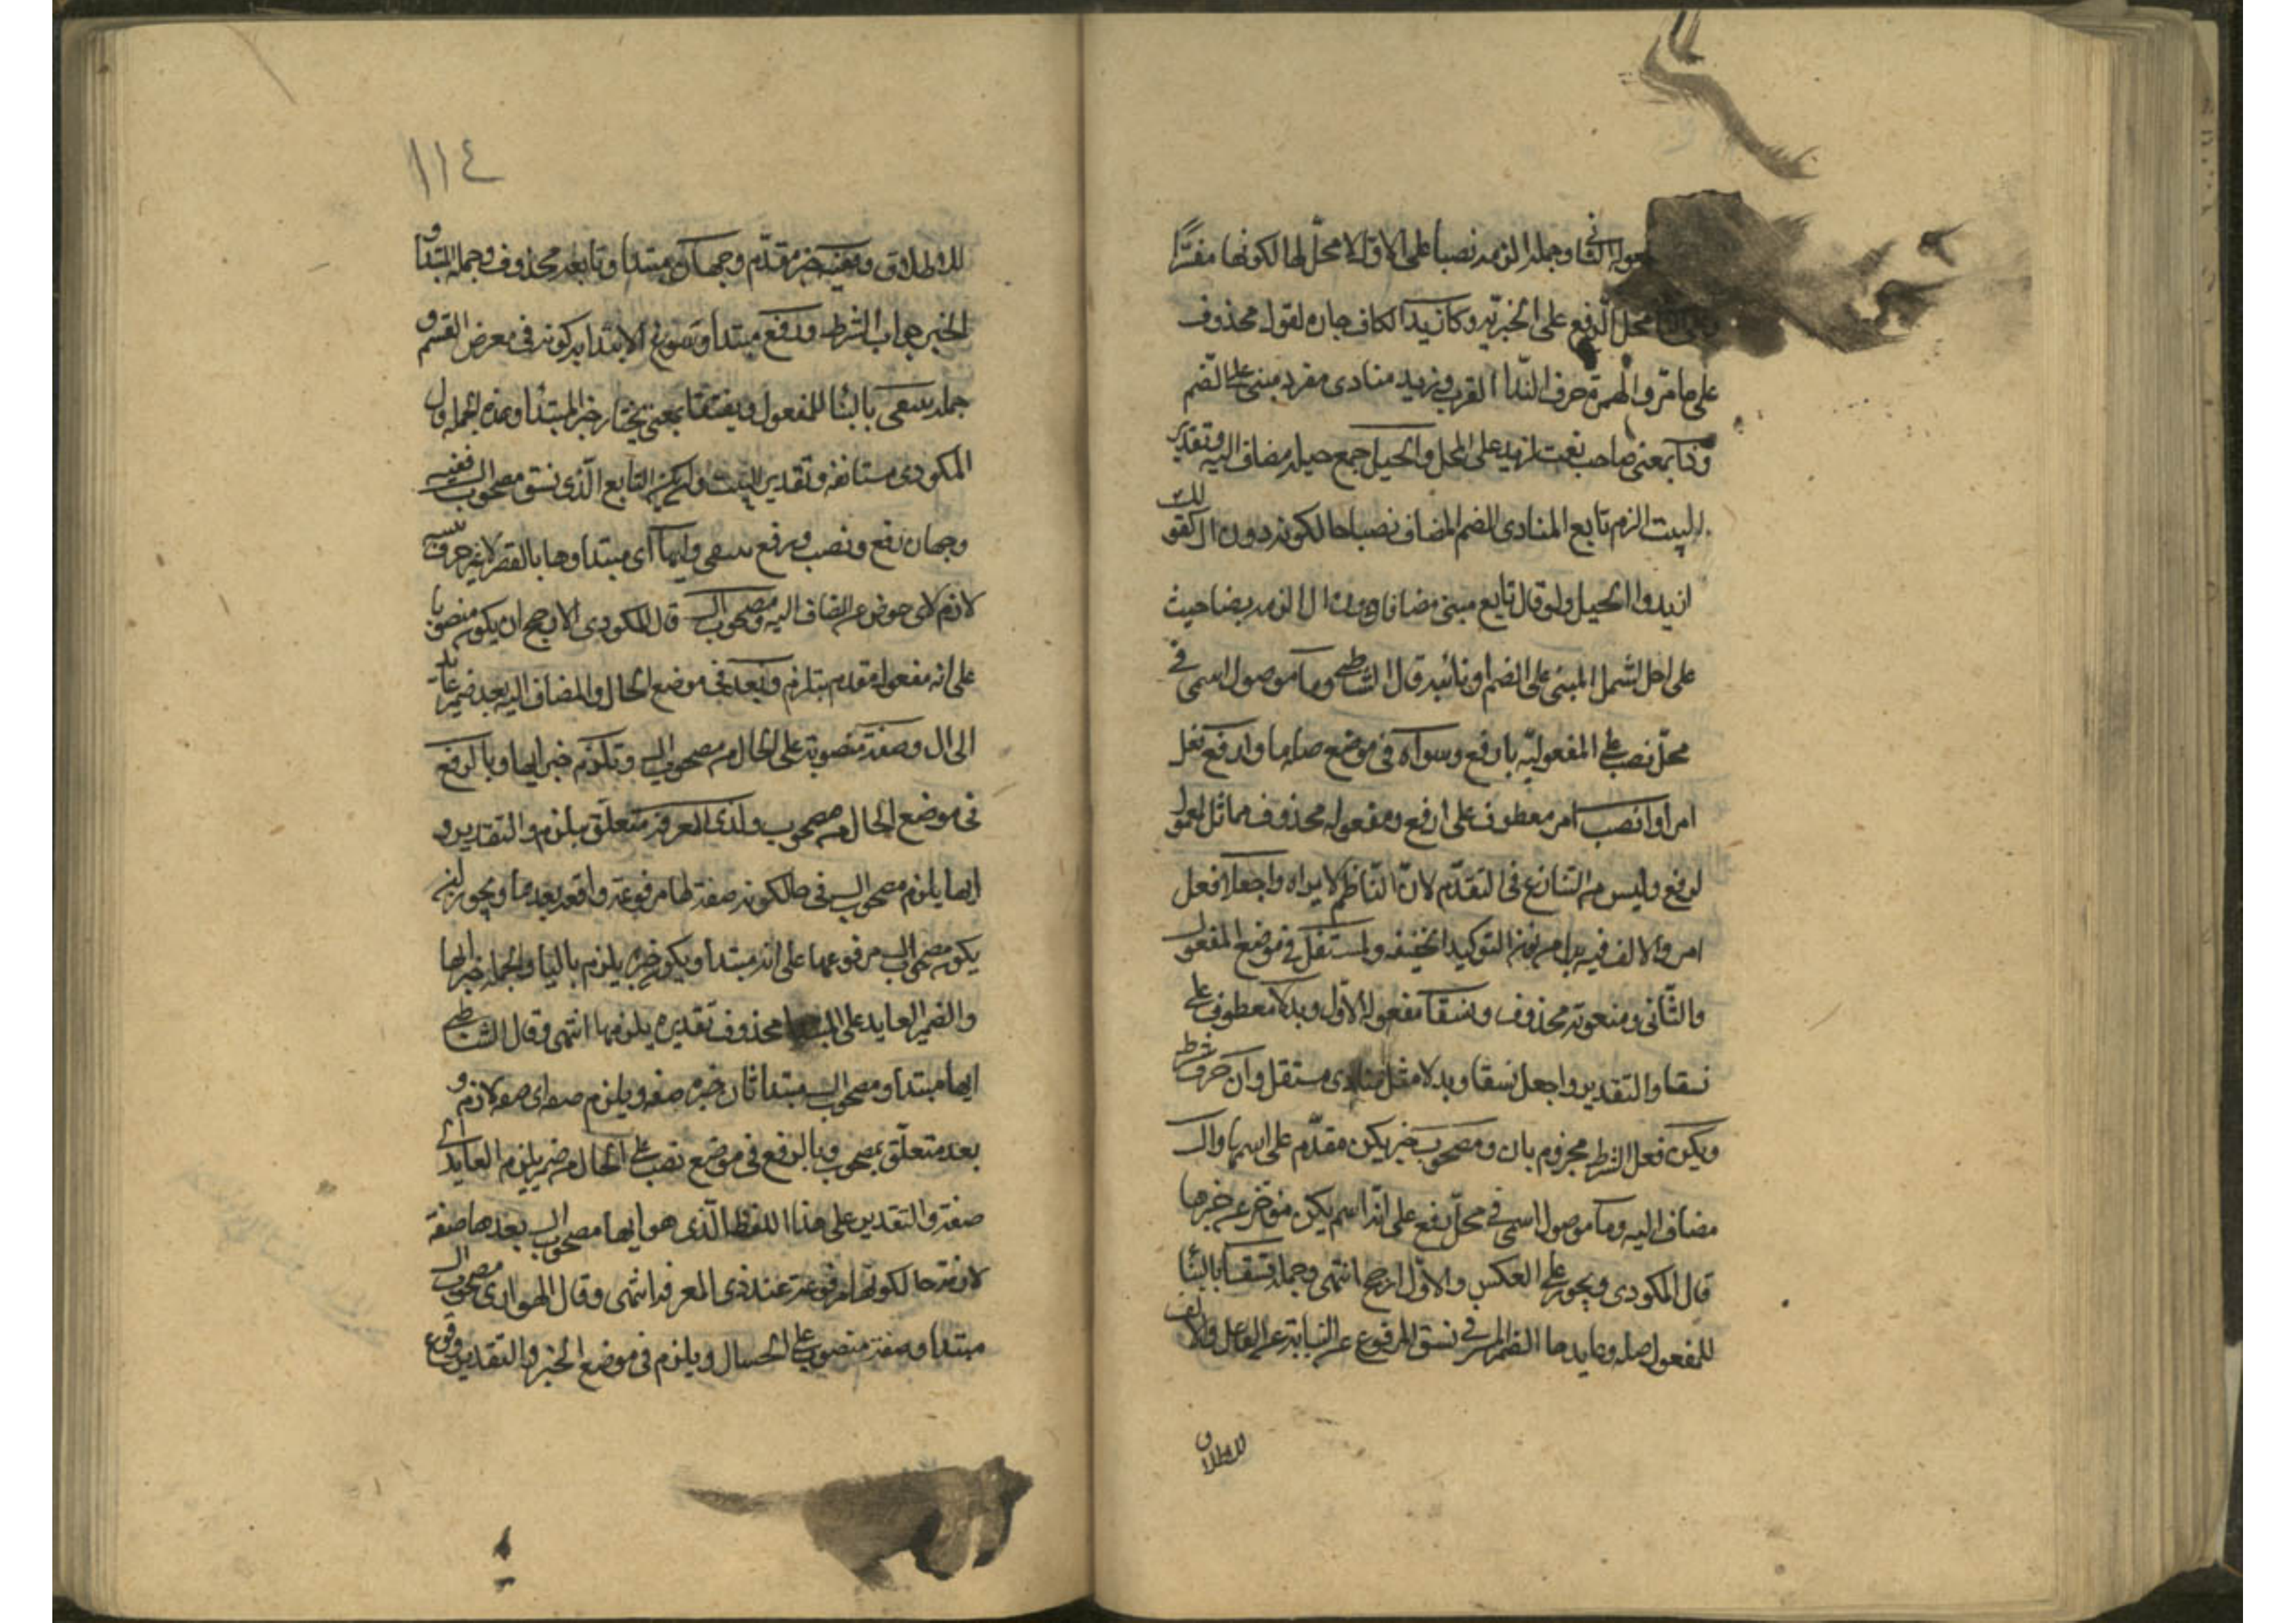 مفعوله الثاني وجملة الزمه نصبا على الاول لا محل لها لكونها مفسرة
محل الرفع على الخبرية وكأزيد الكاف جارة لقول محذوف
على ما مر والهمزة حرف النداء القرب وزيد منادى مفرد مبني على الضم
وذا بمعنى صاحب نعت لزيد على المحل والحيل جمع حيلة مضاف اليه وتقدير
البيت الزم تابع المنادى الضم المضاف نصبا حالكونه دون ال كقولك
ازيد ذا الحيل ولو قال تابع مبني مضافا دون ال الزمه نصبا حيث
على احل لشمل المبني على الضم او نائبه قال الشاطبي وما موصول اسمي في
محل نصب على المفعولية بارفع وسواه في موضع صلة ما وارفع فعل
امر او انصب امر معطوف على ارفع ومفعوله محذوف مماثل لمعمول
ارفع وليس من التنازع في التقدم لان الناظم لا يراه واجعلا فعل
امر والالف فيه بدل من نون التوكيد الخفيفة وكمستقل في موضع المفعول
والثاني ومنعوته محذوف ونسقا مفعوله الاول وبدلا معطوف على
نسقا والتقدير واجعل نسقا وبدلا مثل منادى مستقل وان حرف شرط
ويكن فعل الشرط مجزوم بان ومصحوب خبر يكن مقدم على اسمها وال
مضاف اليه وما موصول اسمي في محل رفع على انه اسم يكن مؤخر عن خبرها
قال المكودي ويجوز على العكس والاول ارجح انتهى وجملة نسقا بالبنا
للمفعول صلة وعايدها الضمير في نسق المرفوع عن النيابة عن الفاعل والالف
للاطلاق
١١٤
للاطلاق وففيه خبر مقدم وجهان مبتدا وتابعه محذوف وجملة المبتدا و
الخبر جواب الشرط ورفع مبتدا وتسويغ الابتدا به كونه في معرض القسم و
جملة ينتقى بالبنا للمفعول وينتقا بمعنى يختار خبر المبتدا وهذه الجملة قال
المكودي مستانفة وتقدير البيت وان يكن التابع الذي نسق مصحوب ال ففيه
وجهان رفع ونصب ورفع ينتقى وايها اي مبتدا وها بالقصر لا غير حرف تنبيه
لازم لاي عوض عن المضاف اليه ومصحوب ال قال المكودي الارجح ان يكون منصوبا
على انه مفعول مقدم بيلزم وبعد في موضع الحال والمضاف اليه بعد ضمير عائد
الى ال وصفة منصوبة على الحال من مصحوب ال ويلزم خبر ايها وبالرفع
في موضع الحال من مصحوب ولذي المعرفة متعلق بيلزم والتقدير و
ايها يلزم مصحوب ال في حالكونه صفة لها مرفوعة واقعة بعدها ويجوز ان
يكون مصحوب ال مرفوعا على انه مبتدا ويكون خبره يلزم باليا والجملة خبر ايها
والضمير العايد على المبتدا محذوف تقديره يلزمها انتهى وقال الشاطبي
ايها مبتدا ومصحوب ال مبتدا ثان خبره صفة ويلزم صفة اي صفة لازم و
بعد متعلق بمصحوب وبالرفع في موضع نصب على الحال من ضمير يلزم العايد الى
صفة والتقدير على هذا اللفظ الذي هو ايها مصحوب ال بعدها صفة
لازمة حالكونها مرفوعة عند ذي المعرفة انتهى وقال الهواري مصحوب ال
مبتدا وصفة منصوب على الحال ويلزم في موضع الخبر والتقدير وقوع